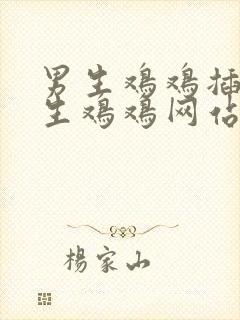 男生鸡鸡插
生鸡鸡网佔
楊家山